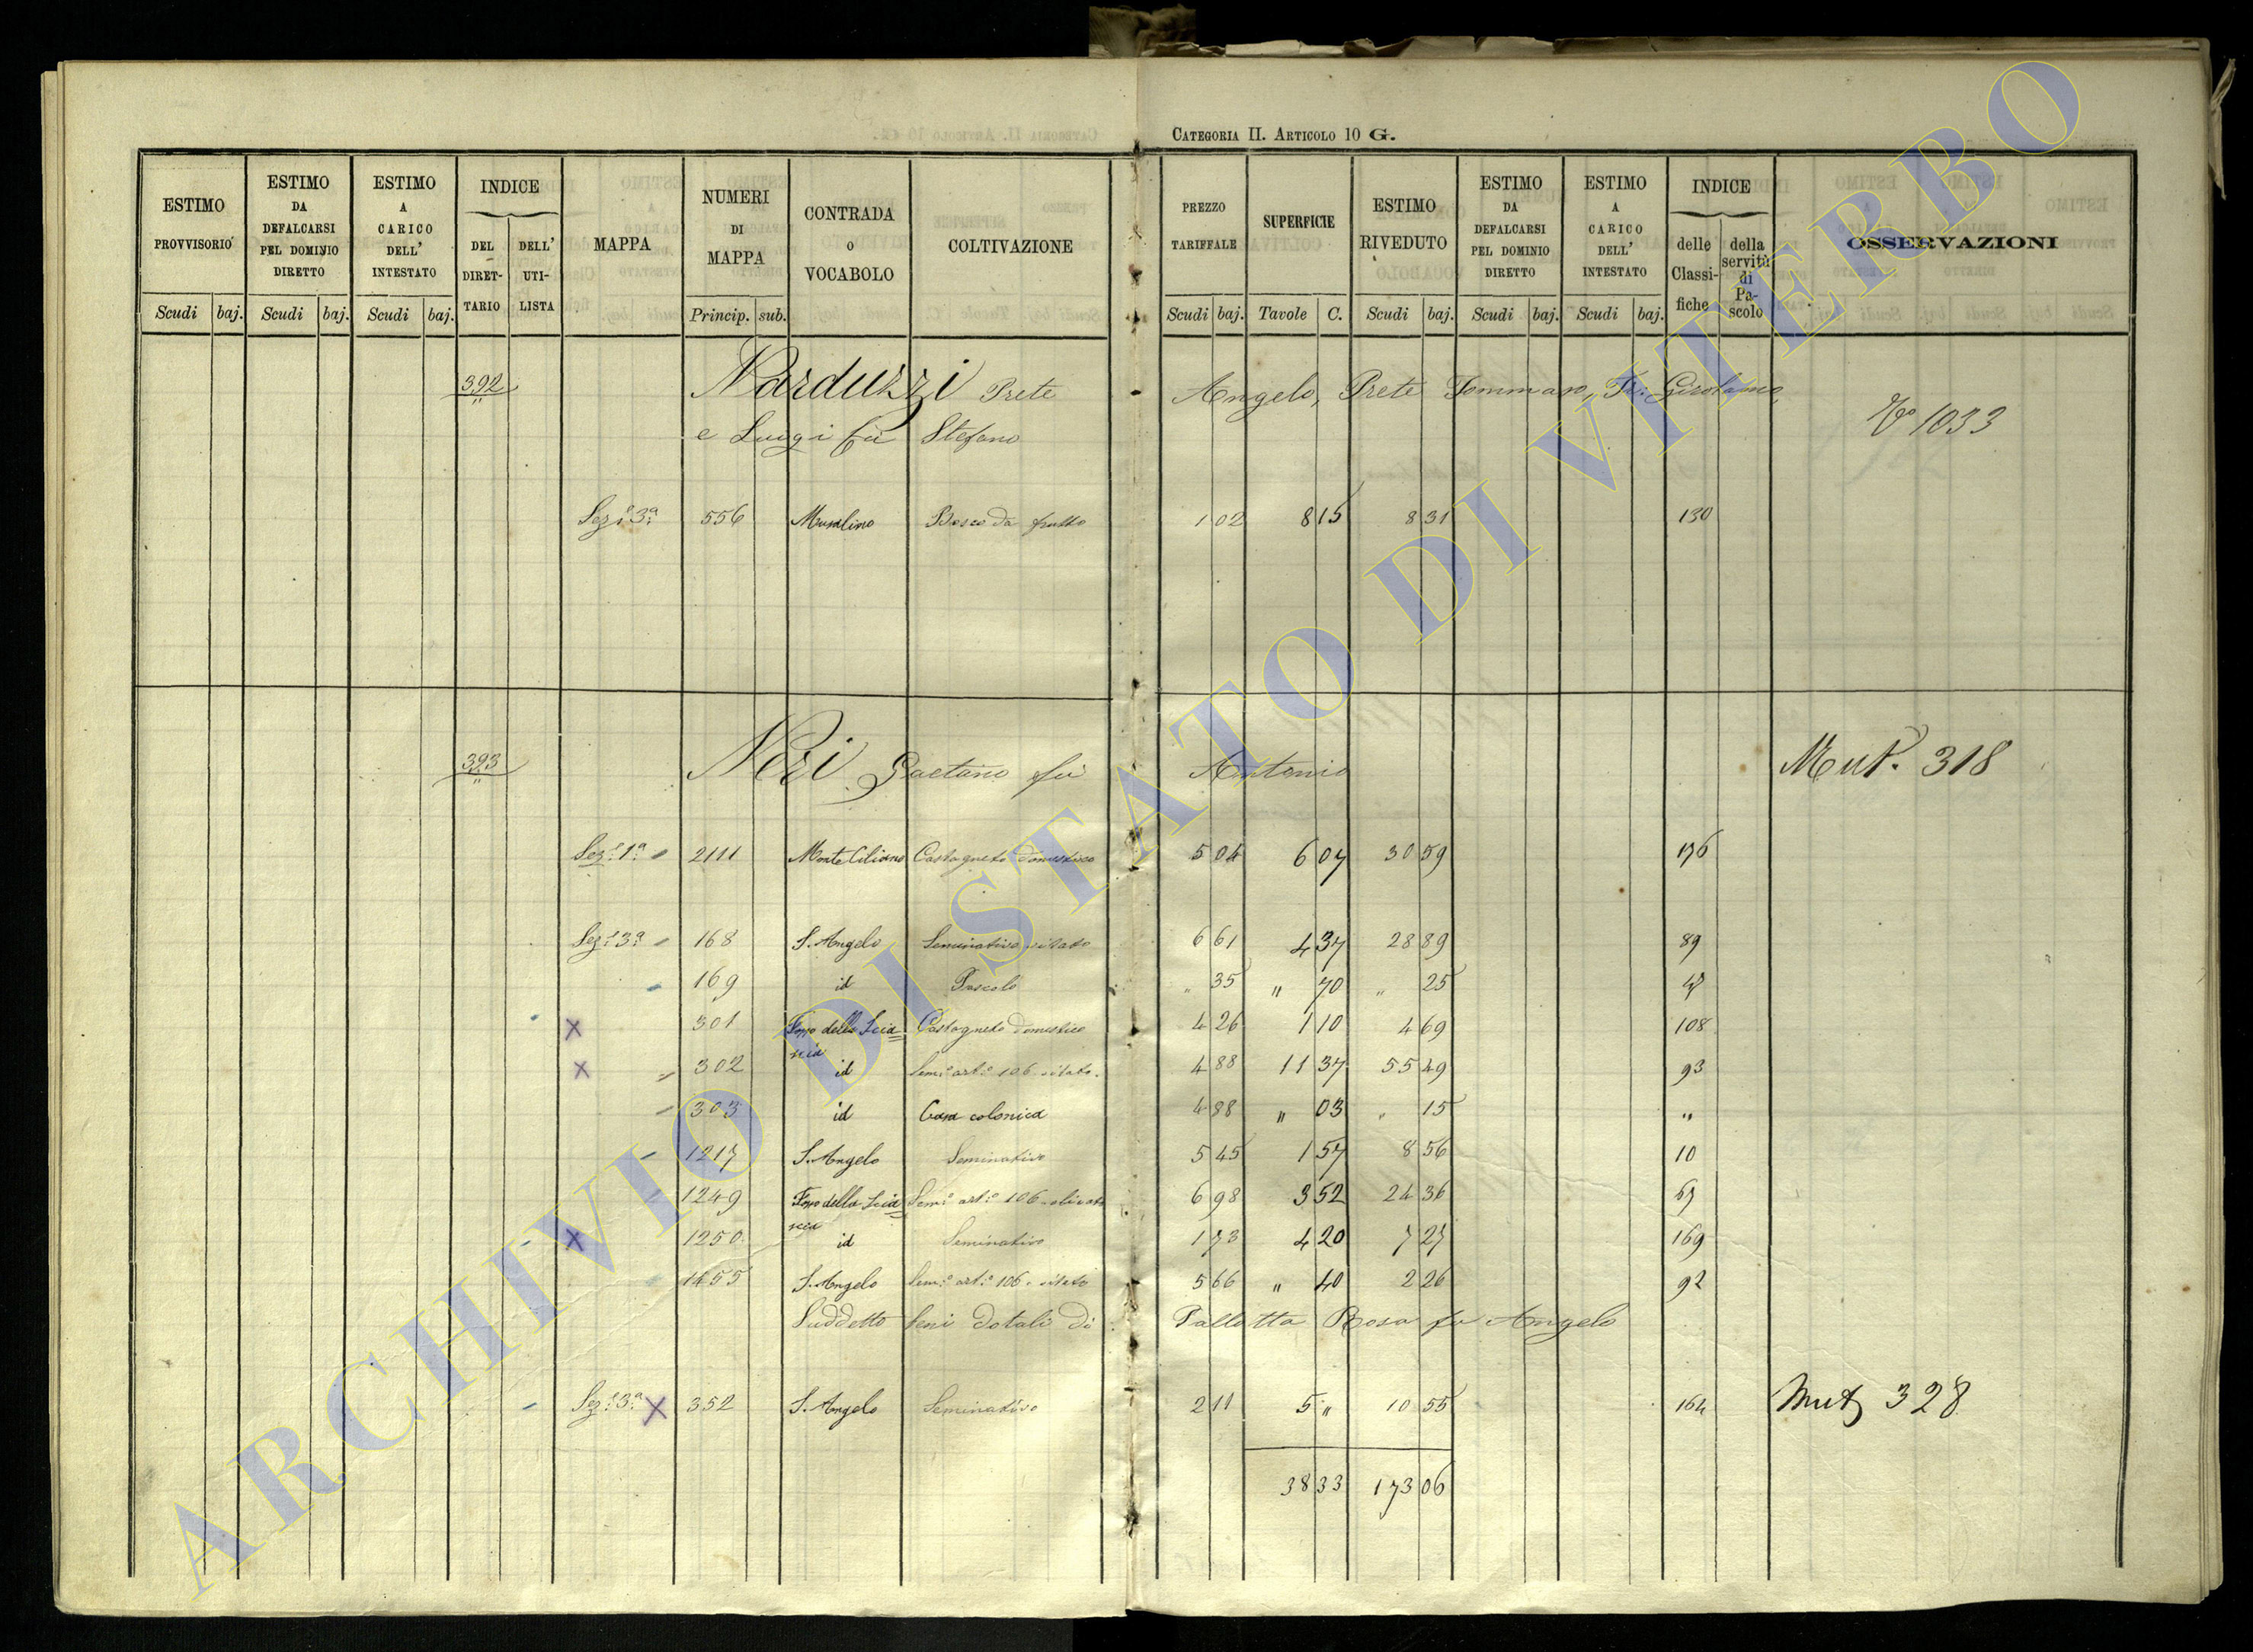 CATEGORIA II. ARTICOLO 10 G.
ESTIMO PROVVISORIO Scudi baj.
ESTIMO DA DEFALCARSI PEL DOMINIO DIRETTO Scudi baj.
ESTIMO A CARICO DELL' INTESTATO Scudi baj.
INDICE DEL DIRET-TARIO DELL' UTI-LISTA
MAPPA
NUMERI DI MAPPA Princip. sub.
CONTRADA O VOCABOLO
COLTIVAZIONE
PREZZO TARIFFALE Scudi baj.
SUPERFICIE Tavole C.
ESTIMO RIVEDUTO Scudi baj.
ESTIMO DA DEFALCARSI PEL DOMINIO DIRETTO Scudi baj.
ESTIMO A CARICO DELL' INTESTATO Scudi baj.
INDICE delle Classi-fiche della servitù di Pa-scolo
OSSERVAZIONI
392 Narduzzi Prete Angelo, Prete Tommaso, Fr: Girolamo,
e Luigi fù Stefano
1033
Sez: 3ª 556 Bosco da frutto 1 02 8 15 8 31 130
393 Neri Gaetano fù Antonio Mut. 318
Sez: 1ª 2111 Monte Ciliano Castagneto domestico 5 04 6 07 30 59 176
Sez: 3ª 168 S. Angelo Seminativo vitato 6 61 4 37 28 89 89
169 id Pascolo " 35 " 70 " 25
x 301 Fosso della Scia=scia Castagneto domestico 4 26 1 10 4 69 108
x 302 id Sem:º art:º 106 vitato 4 88 11 37 55 49 93
303 id Casa colonica 4 88 " 03 " 15 "
1217 S. Angelo Seminativo 5 45 1 57 8 56 10
1249 Fosso della Scia=scia Sem:º art:º 106 olivato 6 98 3 52 24 36 67
x 1250 id Seminativo 1 73 4 20 7 27 169
1455 S. Angelo Sem:º art:º 106 vitato 5 66 " 40 2 26 92
Suddetto beni dotali di Pallotta Rosa fu Angelo
Sez: 3ª x 352 S. Angelo Seminativo 2 11 5 " 10 55 164 Mut 328
38 33 173 06
ARCHIVIO DI STATO DI VITERBO